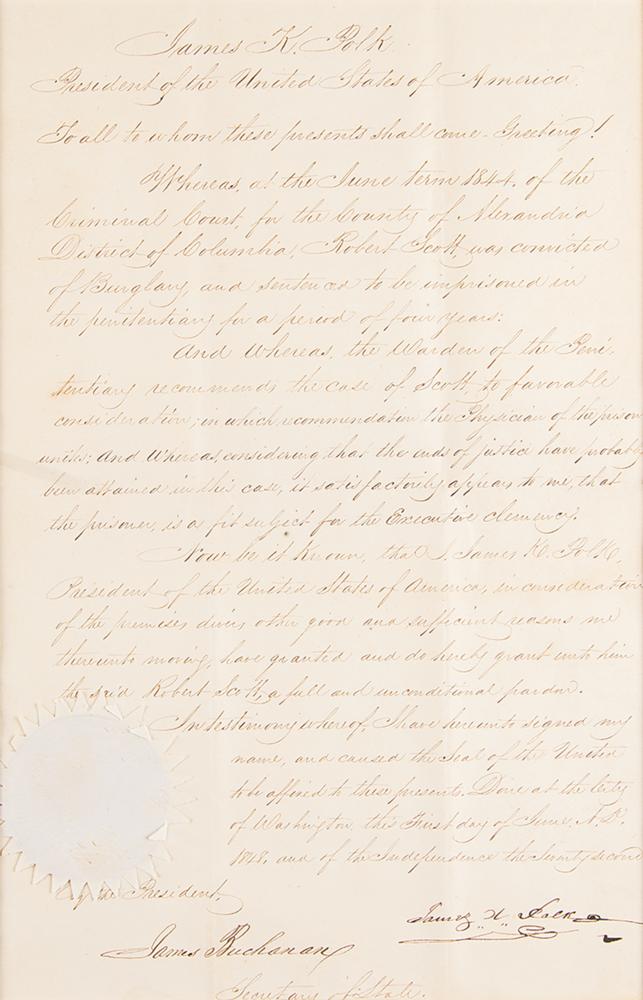 James K. Polk
President of the United States of America.
To all to whom these presents shall come - Greeting!
Whereas, at the June term 1844. of the
Criminal Court, for the County of Alexandria
District of Columbia, Robert Scott, was convicted
of Burglary, and sentenced to be imprisoned in
the penitentiary for a period of four years:
And Whereas, the Warden of the Peni-
tentiary recommends the case of Scott, to favorable
consideration; in which recommendation the Physician of the prison
unites: And Whereas, considering that the ends of justice have probably
been attained in this case, it satisfactorily appears to me, that
the prisoner, is a fit subject for the Executive clemency.
Now be it Known, that I, James K. Polk,
President of the United States of America, in consideration
of the premises divers other good and sufficient reasons me
thereunto moving, have granted and do hereby grant unto him
the said Robert Scott, a full and unconditional pardon.
In testimony whereof, I have hereunto signed my
name, and caused the Seal of the United
to be affixed to these presents. Done at the City
of Washington, this First day of June. A.D.
1848, and of the Independence the Seventy second
By the President,
James K. Polk
James Buchanan
Secretary of State.